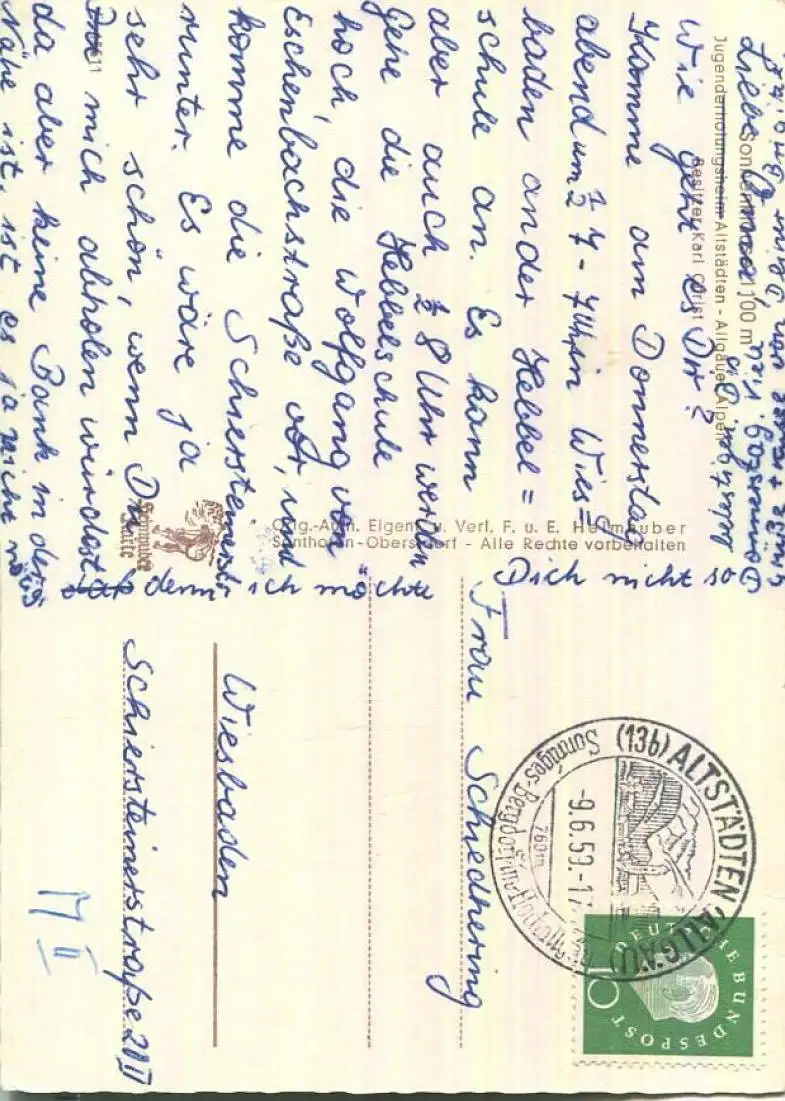 Sonnenhof 1100 m
Jugenderholungsheim Altstädten - Allgäuer Alpen
Besitzer Karl Christ
Liebe Oma!
Wie geht es Dir?
Komme am Donnerstag
abend um ½ 7 - 7 Uhr in Wies=
baden an der Hebbel=
schule an. Es kann
aber auch ½ 8 Uhr werden
Gehe die Hebbelschule
hoch, die Wolfgang von
Eschenbachstraße vor, und
komme die Schiersteinerstr
runter. Es wäre ja
sehr schön, wenn Du
mich abholen würdest
da aber keine Bank in der
Nähe ist, ist es ja nicht nötig
denn ich möchte
Dich nicht so
Orig.-Aufn. Eigent. u. Verl. F. u. E. Heimhuber
Sonthofen-Oberstdorf - Alle Rechte vorbehalten
Heimhuber
Karte
Frau Schiedhering
Wiesbaden
Schiersteinerstraße 20 II
(13b) ALTSTÄDTEN (ALLGÄU)
-9.6.59.-17
760m
Sonniges Bergdorf
10
DEUTSCHE BUNDESPOST